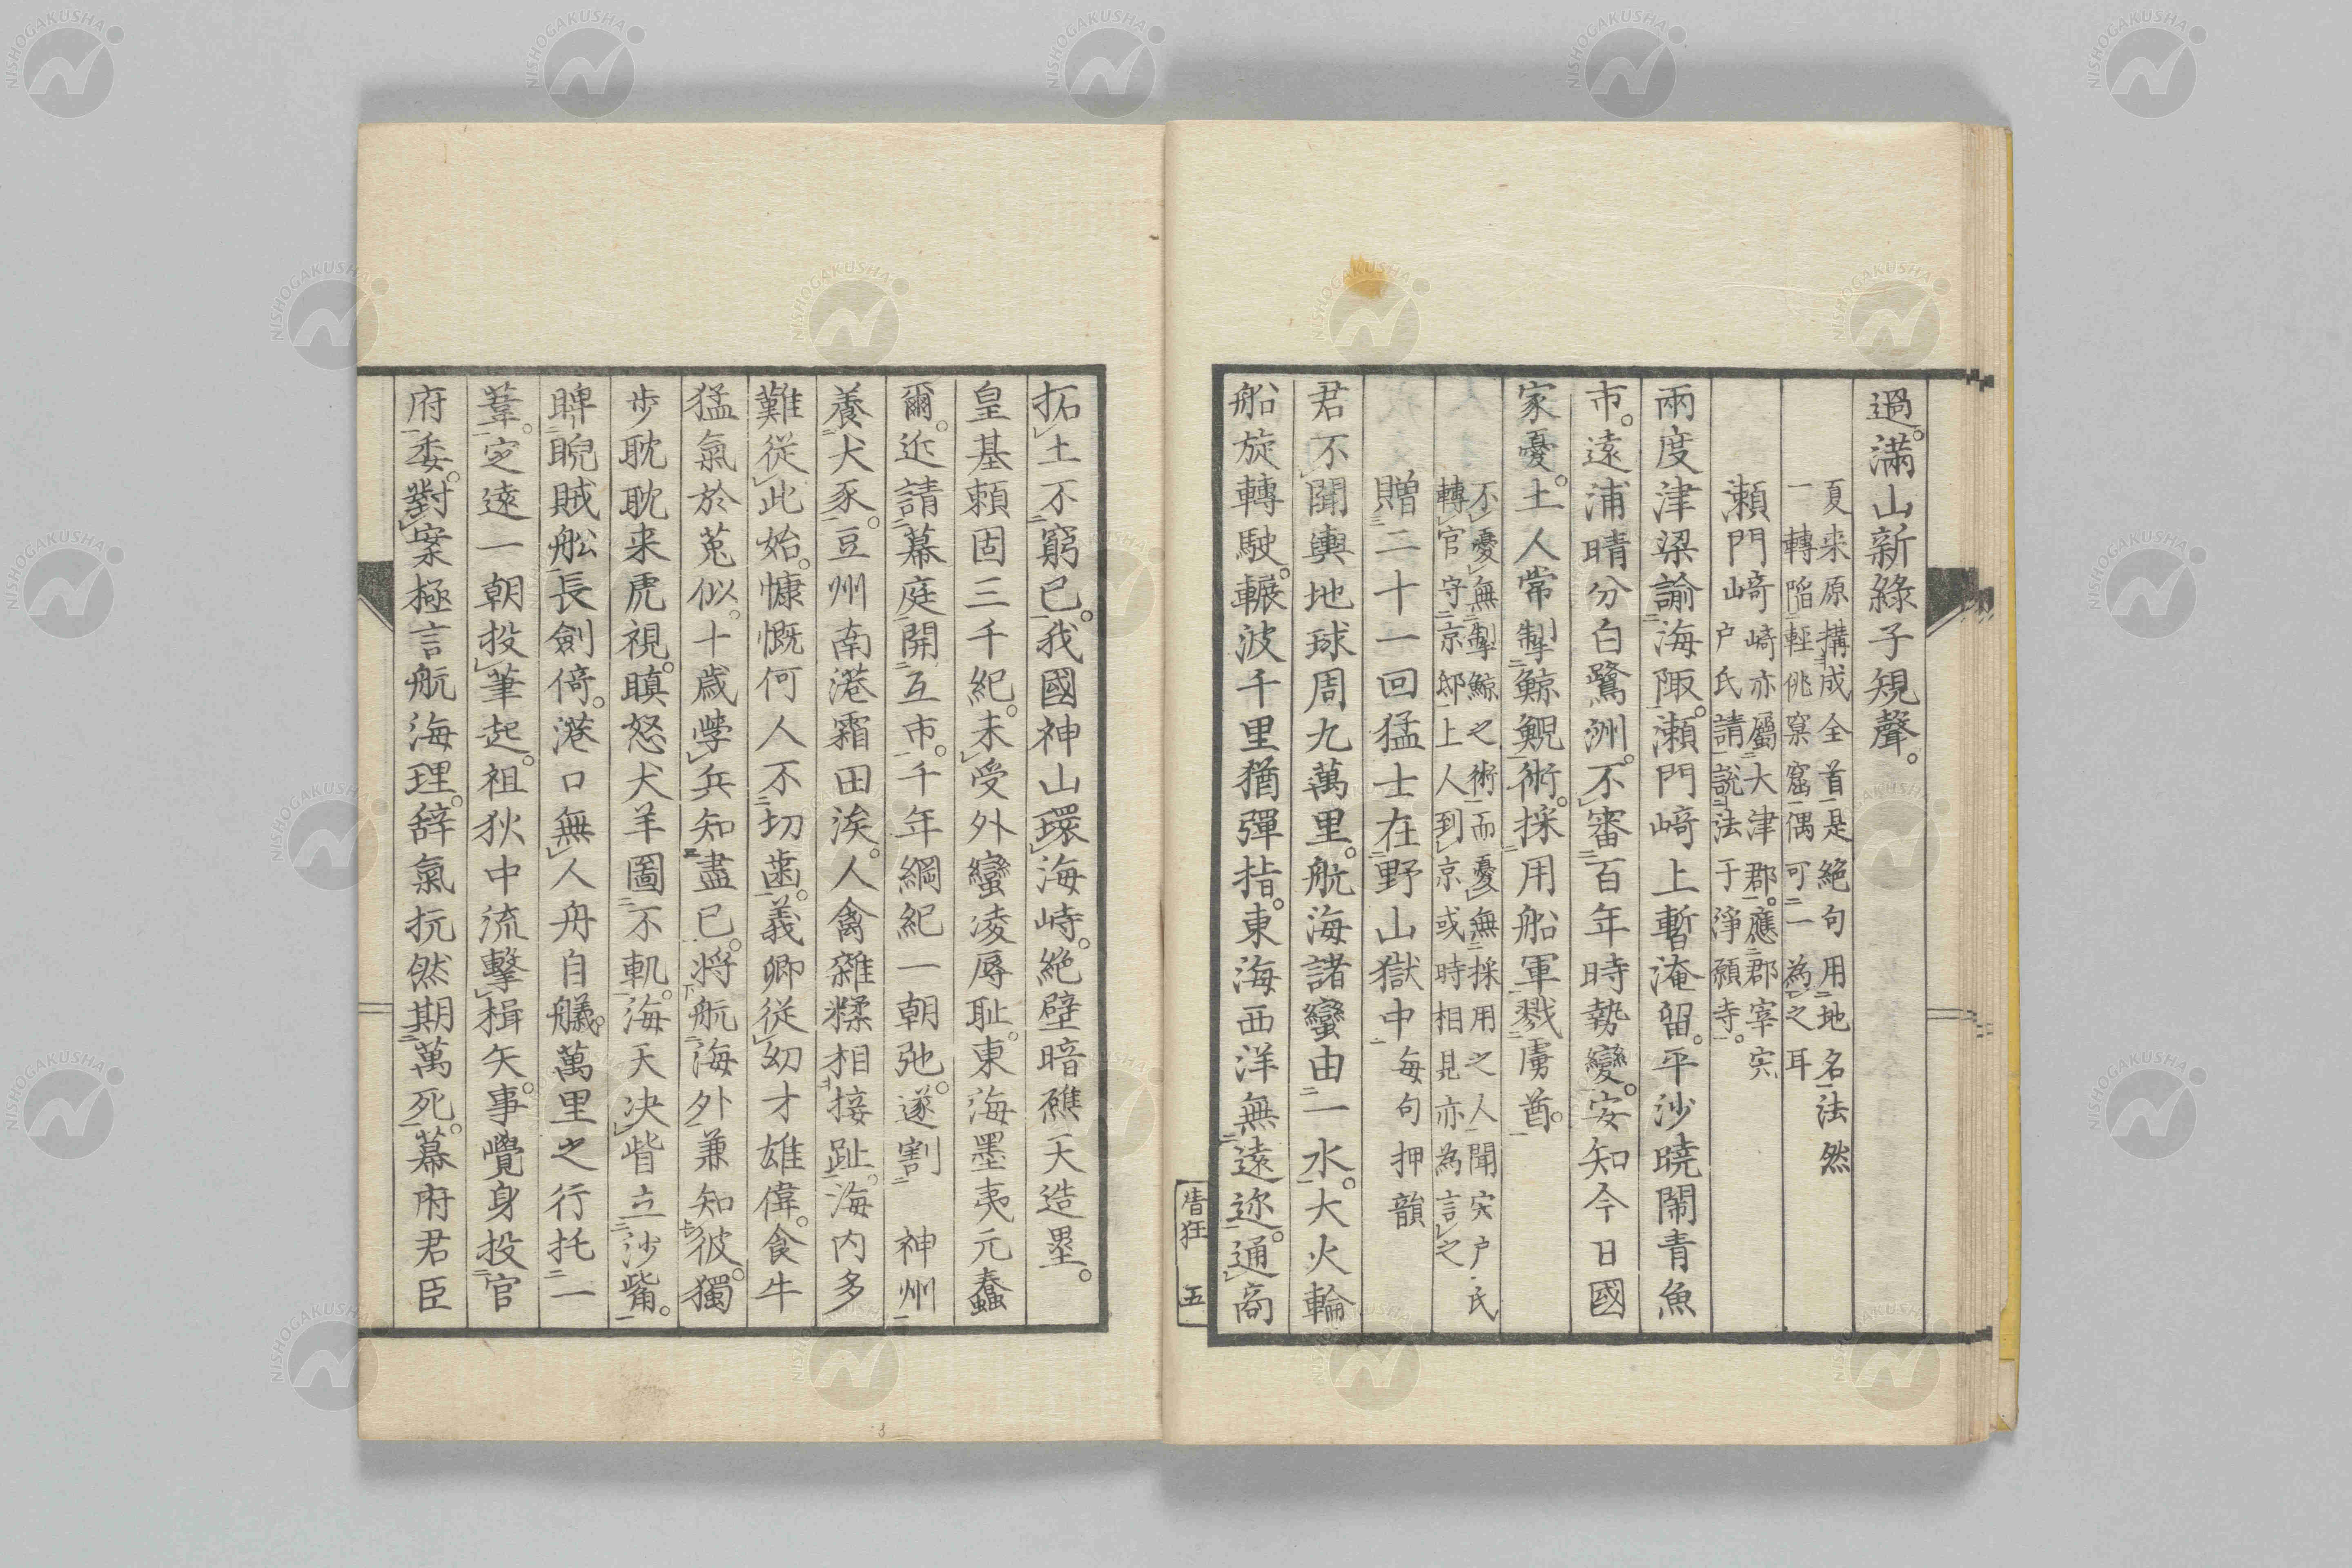 過。滿山新綠子規聲。
夏来原搆成全首是絶句用地名法然
一轉陷輕佻窠窟偶可一為之耳
瀨門﨑崎亦屬大津郡。應郡宰宍
戸氏請説法于淨願寺。
兩度津梁諭海陬。瀨門﨑上暫淹留。平沙曉鬧青魚
市。遠浦晴分白鷺洲。不審百年時勢變。安知今日國
家憂。土人常掣鯨鯢術。採用船軍戮虜酋。
不憂無掣鯨之術而憂無採用之人聞宍戸氏
轉官守京邸上人到京或時相見亦為言之
贈二十一回猛士在野山獄中每句押韻
君不聞輿地球周九萬里。航海諸蠻由一水。大火輪
船旋轉駛。輾波千里猶彈指。東海西洋無遠迩。通商
五
拓土不窮已。我國神山環海峙。絶壁暗礁天造壘。
皇基頼固三千紀。未受外蠻凌辱耻。東海墨夷元蠢
爾。近請幕庭開互市。千年綱紀一朝弛。遂割 神州
養犬豕。豆州南港霜田涘。人禽雜糅相接趾。海内多
難從此始。慷慨何人不切齒。義卿從幼才雄偉。食牛
猛氣於菟似。十歳學兵知盡已。将航海外兼知彼。獨
步耽耽来虎視。瞋怒犬羊圖不軌。海天决眥立沙觜。
睥睨賊舩長劍倚。港口無人舟自艤。萬里之行托一
葦。定遠一朝投筆起。祖狄中流擊楫矢。事覺身投官
府委。對案極言航海理。辞氣抗然期萬死。幕府君臣